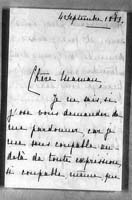 4 Septembre 1883.
Chère Maman
Je ne sais, si
j'ose vous demander de
me pardonner car je
me sens coupable au
delà de toute expression,
si coupable même que